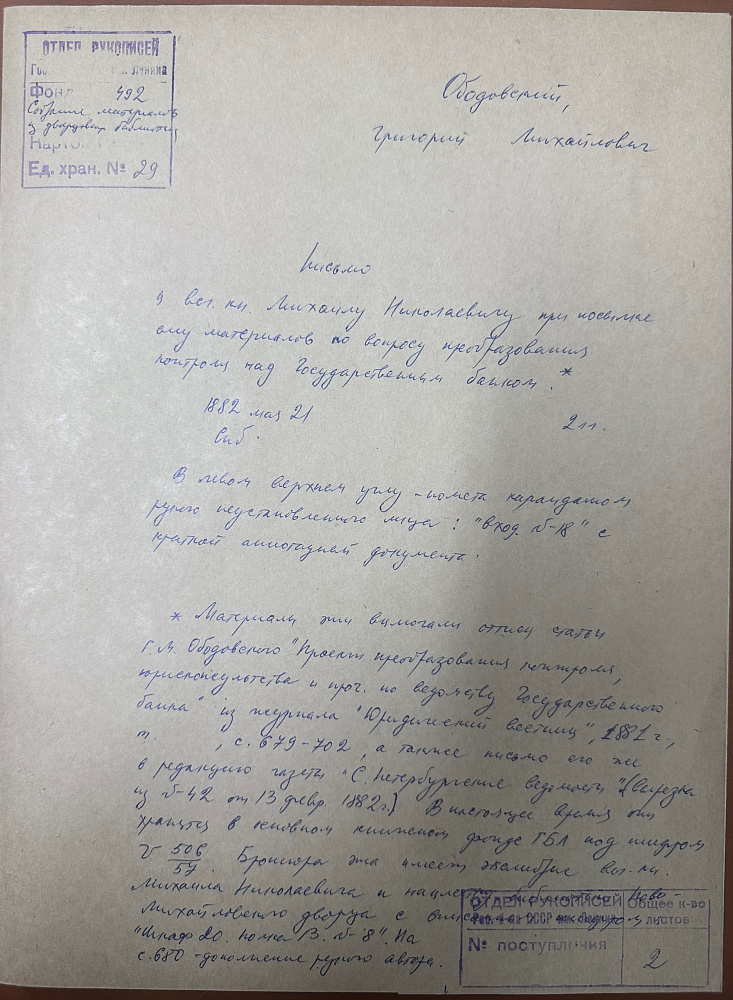 ОТДЕЛ РУКОПИСЕЙ
Фонд 492
Собрание материалов
из дворцовых библиотек
Ед. хран. № 29
Ободовский,
Григорий Михайлович
Письмо
вел. кн. Михаилу Николаевичу при посылке
ему материалов по вопросу преобразования
контроля над Государственным банком.*
1882 мая 21
Спб.
2 лл.
В левом верхнем углу - помета карандашом
рукою неустановленного лица: "вход. №-18" с
краткой аннотацией документа.
* Материалы эти включали оттиск статьи
Г.М. Ободовского "Проект преобразования контроля,
юрисконсульства и проч. по ведомству Государственного
банка" из журнала "Юридический вестник", 1881 г.,
т. , с. 679-702, а также письмо его же
в редакцию газеты "С.Петербургские ведомости" (вырезка
из №-42 от 13 февр. 1882 г.) В настоящее время они
хранятся в основном книжном фонде ГБЛ под шифром
V 506/57. Брошюра эта имеет экслибрис вел. кн.
Михаила Николаевича и библиотеки Ново-
Михайловского дворца с
"Шкаф 20. Полка 13. №-8". На
с. 680 - дополнение рукою автора.
ОТДЕЛ РУКОПИСЕЙ
№ поступления
Общее к-во
листов
2